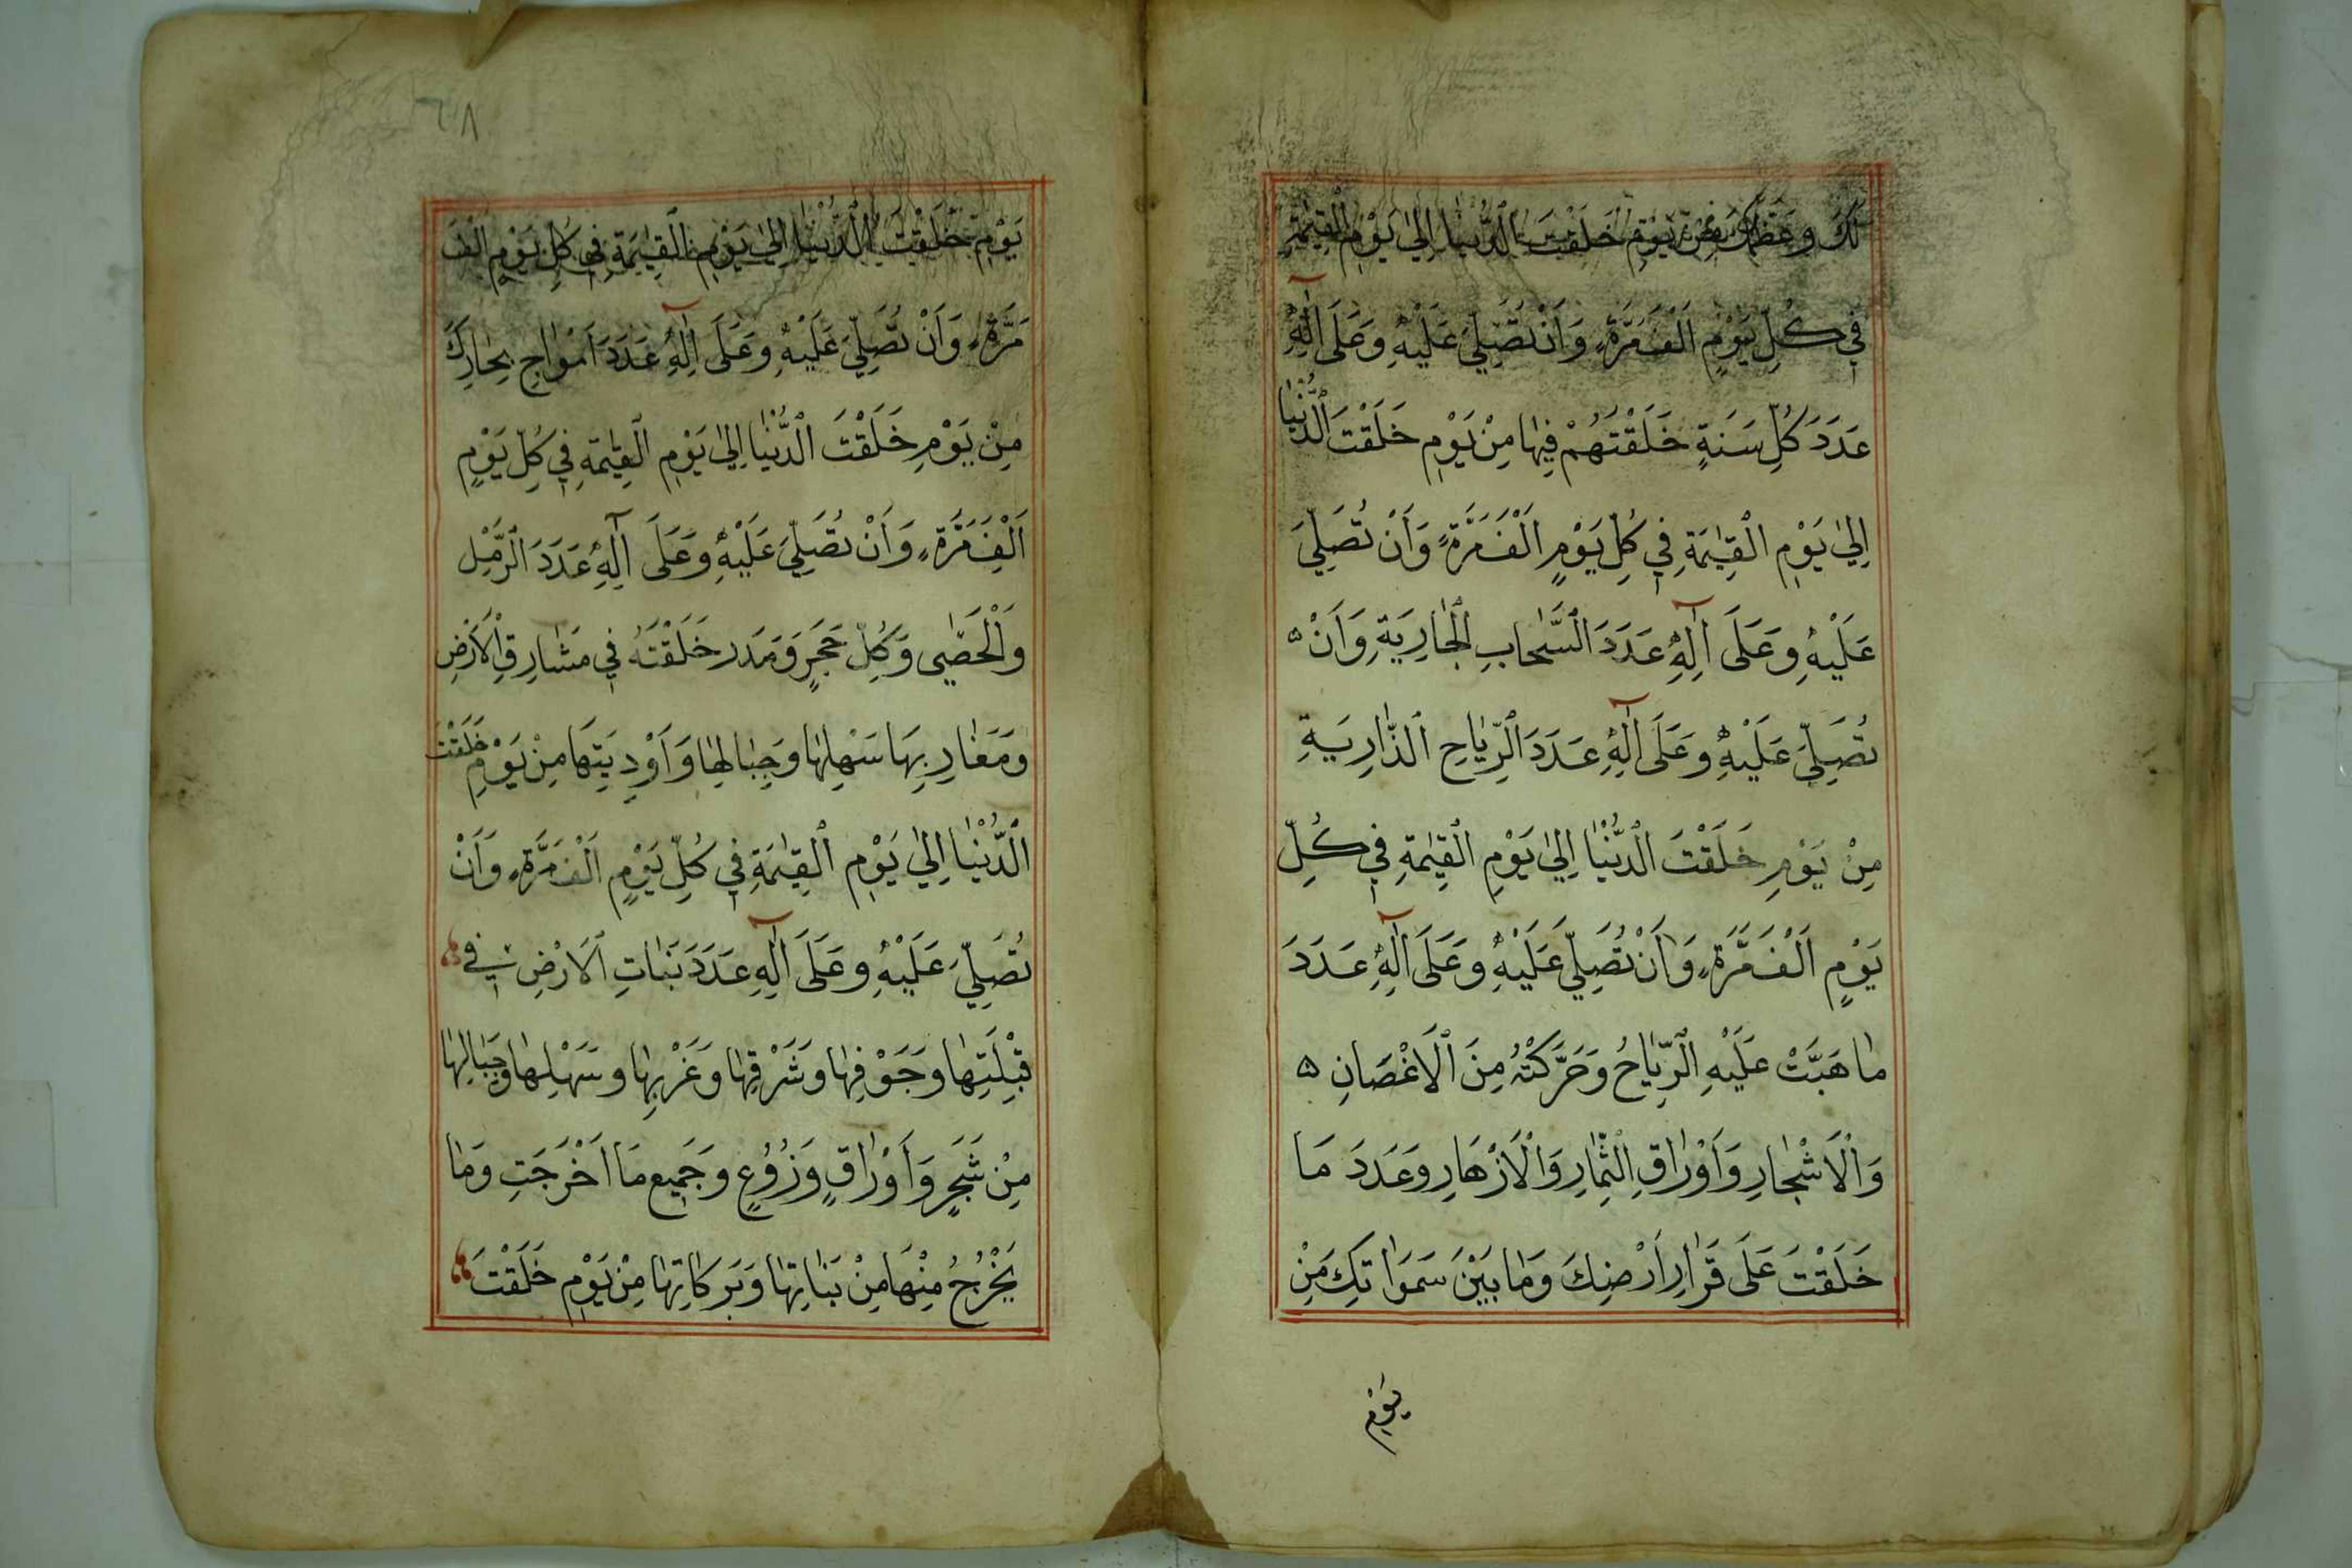 لَكَ وَعَظَّمَكَ مِنْ يَوْمِ خَلَقْتَ الدُّنْيَا اِلىٰ يَوْمِ الْقِيٰمَةِ
فِي كُلِّ يَوْمٍ اَلْفَ مَرَّةٍ وَاَنْ تُصَلِّيَ عَلَيْهِ وَعَلَى اٰلِهِ
عَدَدَ كُلِّ سَنَةٍ خَلَقْتَهُمْ فِيهَا مِنْ يَوْمِ خَلَقْتَ الدُّنْيَا
اِلىٰ يَوْمِ الْقِيٰمَةِ فِي كُلِّ يَوْمٍ اَلْفَ مَرَّةٍ وَاَنْ تُصَلِّيَ
عَلَيْهِ وَعَلَى اٰلِهِ عَدَدَ السَّحَابِ الْجَارِيَةِ وَاَنْ ۵
تُصَلِّيَ عَلَيْهِ وَعَلَى اٰلِهِ عَدَدَ الرِّيَاحِ الذَّارِيَةِ
مِنْ يَوْمِ خَلَقْتَ الدُّنْيَا اِلىٰ يَوْمِ الْقِيٰمَةِ فِي كُلِّ
يَوْمٍ اَلْفَ مَرَّةٍ وَاَنْ تُصَلِّيَ عَلَيْهِ وَعَلَى اٰلِهِ عَدَدَ
مَا هَبَّتْ عَلَيْهِ الرِّيَاحُ وَحَرَّكَتْهُ مِنَ الْاَغْصَانِ ۵
وَالْاَشْجَارِ وَاَوْرَاقِ الثِّمَارِ وَالْاَزْهَارِ وَعَدَدَ مَا
خَلَقْتَ عَلَى قَرَارِ اَرْضِكَ وَمَا بَيْنَ سَمَوَاتِكَ مِنْ
يَوْمِ
٦٨
يَوْمِ خَلَقْتَ الدُّنْيَا اِلىٰ يَوْمِ الْقِيٰمَةِ فِي كُلِّ يَوْمٍ اَلْفَ
مَرَّةٍ وَاَنْ تُصَلِّيَ عَلَيْهِ وَعَلَى اٰلِهِ عَدَدَ اَمْوَاجِ بِحَارِكَ
مِنْ يَوْمِ خَلَقْتَ الدُّنْيَا اِلىٰ يَوْمِ الْقِيٰمَةِ فِي كُلِّ يَوْمٍ
اَلْفَ مَرَّةٍ وَاَنْ تُصَلِّيَ عَلَيْهِ وَعَلَى اٰلِهِ عَدَدَ الرَّمْلِ
وَالْحَصٰى وَكُلِّ حَجَرٍ وَمَدَرٍ خَلَقْتَهُ فِي مَشَارِقِ الْاَرْضِ
وَمَغَارِبِهَا سَهْلِهَا وَجِبَالِهَا وَاَوْدِيَتِهَا مِنْ يَوْمِ خَلَقْتَ
الدُّنْيَا اِلىٰ يَوْمِ الْقِيٰمَةِ فِي كُلِّ يَوْمٍ اَلْفَ مَرَّةٍ وَاَنْ
تُصَلِّيَ عَلَيْهِ وَعَلَى اٰلِهِ عَدَدَ نَبَاتِ الْاَرْضِ فِي
قِبْلَتِهَا وَجَوْفِهَا وَشَرْقِهَا وَغَرْبِهَا وَسَهْلِهَا وَجِبَالِهَا
مِنْ شَجَرٍ وَاَوْرَاقٍ وَزُرُوعٍ وَجَمِيعِ مَا اَخْرَجَتِ وَمَا
يَخْرُجُ مِنْهَا مِنْ نَبَاتِهَا وَبَرَكَاتِهَا مِنْ يَوْمِ خَلَقْتَ